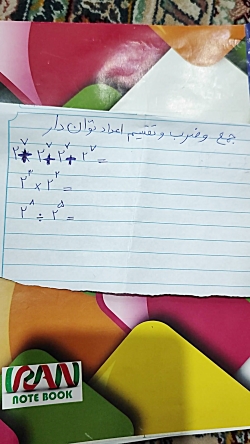 جمع و ضرب و تقسیم اعداد توان دار
۲^۷ + ۲^۷ + ۲^۷ + ۲^۷ =
۲^۳ × ۲^۲ =
۲^۸ ÷ ۲^۵ =
IRAN
NOTE BOOK